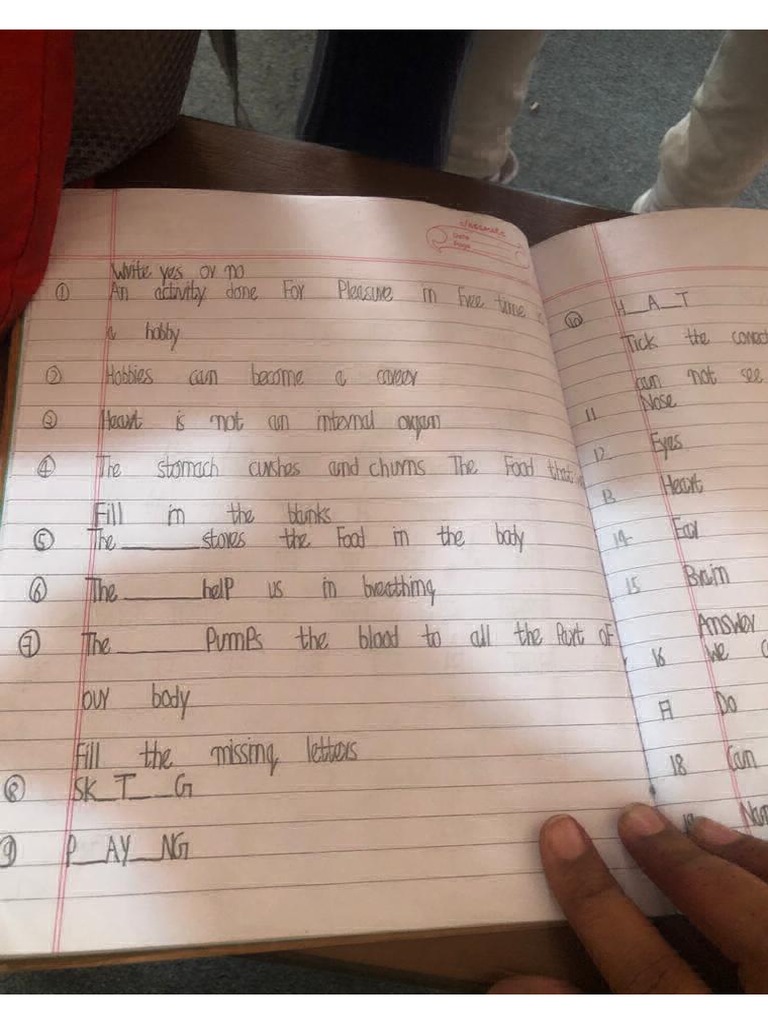 classmate
Date
Page
Write yes or no
① An activity done For Pleasure in Free time
a hobby
② Hobbies can become a career
③ Heart is not an internal organ
④ The stomach crushes and churns The Food that
Fill in the blanks
⑤ The ______ stores the Food in the body
⑥ The ______ help us in breathing
⑦ The ______ PumPs the blood to all the Part oF
our body
Fill the missing letters
⑧ SK_T__G
⑨ P_AY_NG
⑩ H_A_T
Tick the correct
can not see
11 Nose
12 Eyes
13 Heart
14 Ear
15 Brain
Answer
16 We
17 Do
18 Can
19